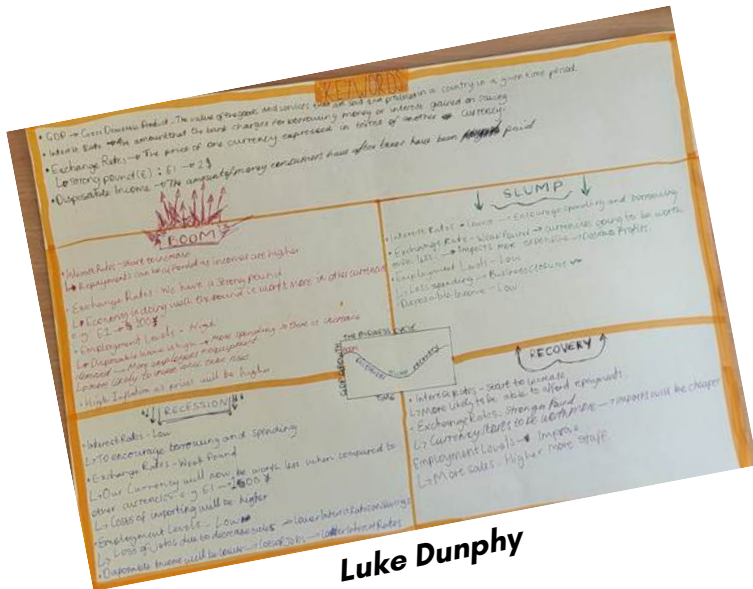 KEYWORDS
• GDP → Gross Domestic Product - The value of the goods and services that are sold and produced in a country in a given time period.
• Interest Rate → the amount that the bank charges for borrowing money or interest gained on saving
• Exchange Rates → The price of one currency expressed in terms of another currency.
↳ Strong pound (£) : £1 → 2$
• Disposable Income → The amount of money consumers have after taxes have been paid
BOOM
• Interest Rates - Start to increase
↳ Repayments can be afforded as incomes are higher
• Exchange Rates - We have a strong pound
↳ Economy is doing well the pound is worth more in other currencies
e.g. £1 →
• Employment Levels - High
↳ Disposable income is high → More spending so there is increase
demand → More employees required
more likely to
• High Inflation as prices will be higher
SLUMP
• Interest Rates - Lower - Encourage spending and borrowing
• Exchange Rate - Weak Pound → currencies going to be worth
even less. → Imports more expensive → Profits
• Employment Levels - Low
↳ Less spending → Business closure
• Disposable Income - Low
THE BUSINESS CYCLE
GDP GROWTH
BOOM
RECESSION
SLUMP
RECOVERY
TIME
RECESSION
• Interest Rates - Low
↳ To encourage borrowing and spending
• Exchange Rates - Weak Pound
↳ Our currency will now be worth less when compared to
other currencies e.g £1 →
↳ Costs of importing will be higher
• Employment Levels - Low
↳ Loss of jobs due to decrease sales → lower interest rates on savings
• Disposable income will be lower → loss of jobs → lower Interest Rates
RECOVERY
• Interest Rates - Start to increase
↳ More likely to be able to afford repayments.
• Exchange Rates - Strong Pound
↳ Currency starts to be worth more → imports will be cheaper
Employment Levels - Improve
↳ More sales - Higher more staff.
Luke Dunphy